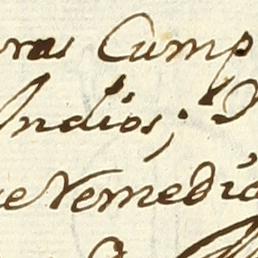 ras Cump
Indios;
e Remedia